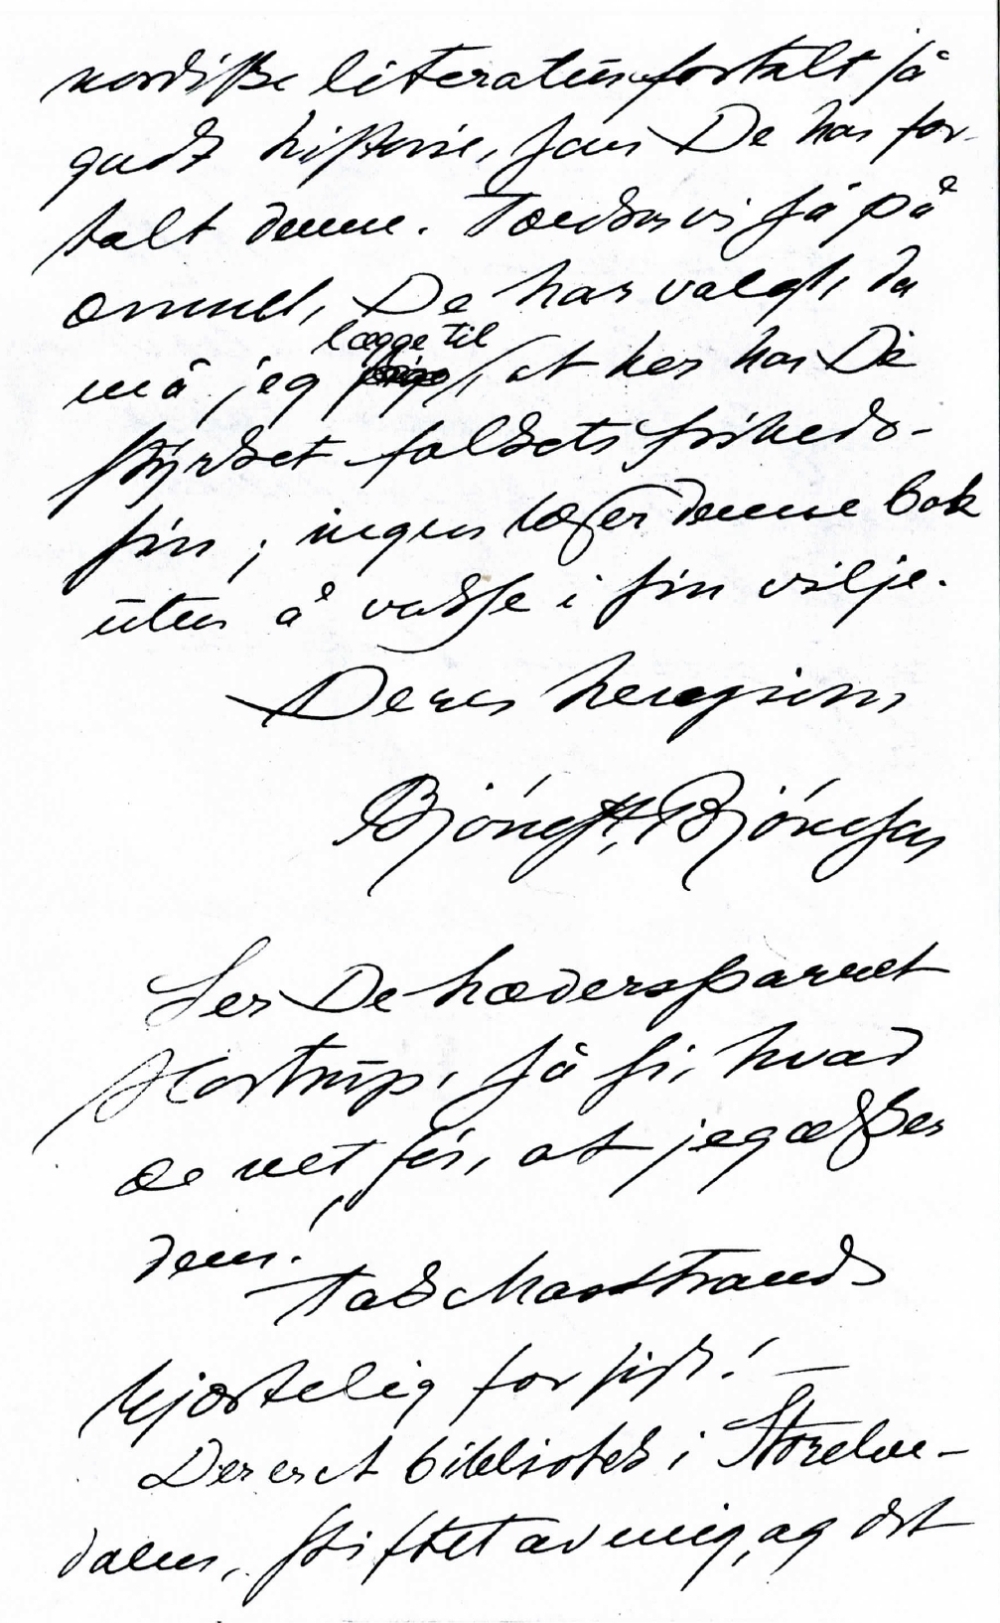 nordiske literatur fortalt så
godt historie, som De har for-
talt denne. Tænker vi så på
æmnet, De har valgt, da
må jeg lægge til, at her har De
styrket folkets friheds-
sin; ingen læser denne bok
uten å vokse i sin vilje.
Deres hengivne
Bjørnst. Bjørnson
Ser De hædersparret
Hostrup, så si, hvad
de vet før, at jeg ælsker
dem!
Tak Marstrands
hjærtelig for sist! —
Der er et bibliotek i Storelve-
dalen, stiftet av mig, og det